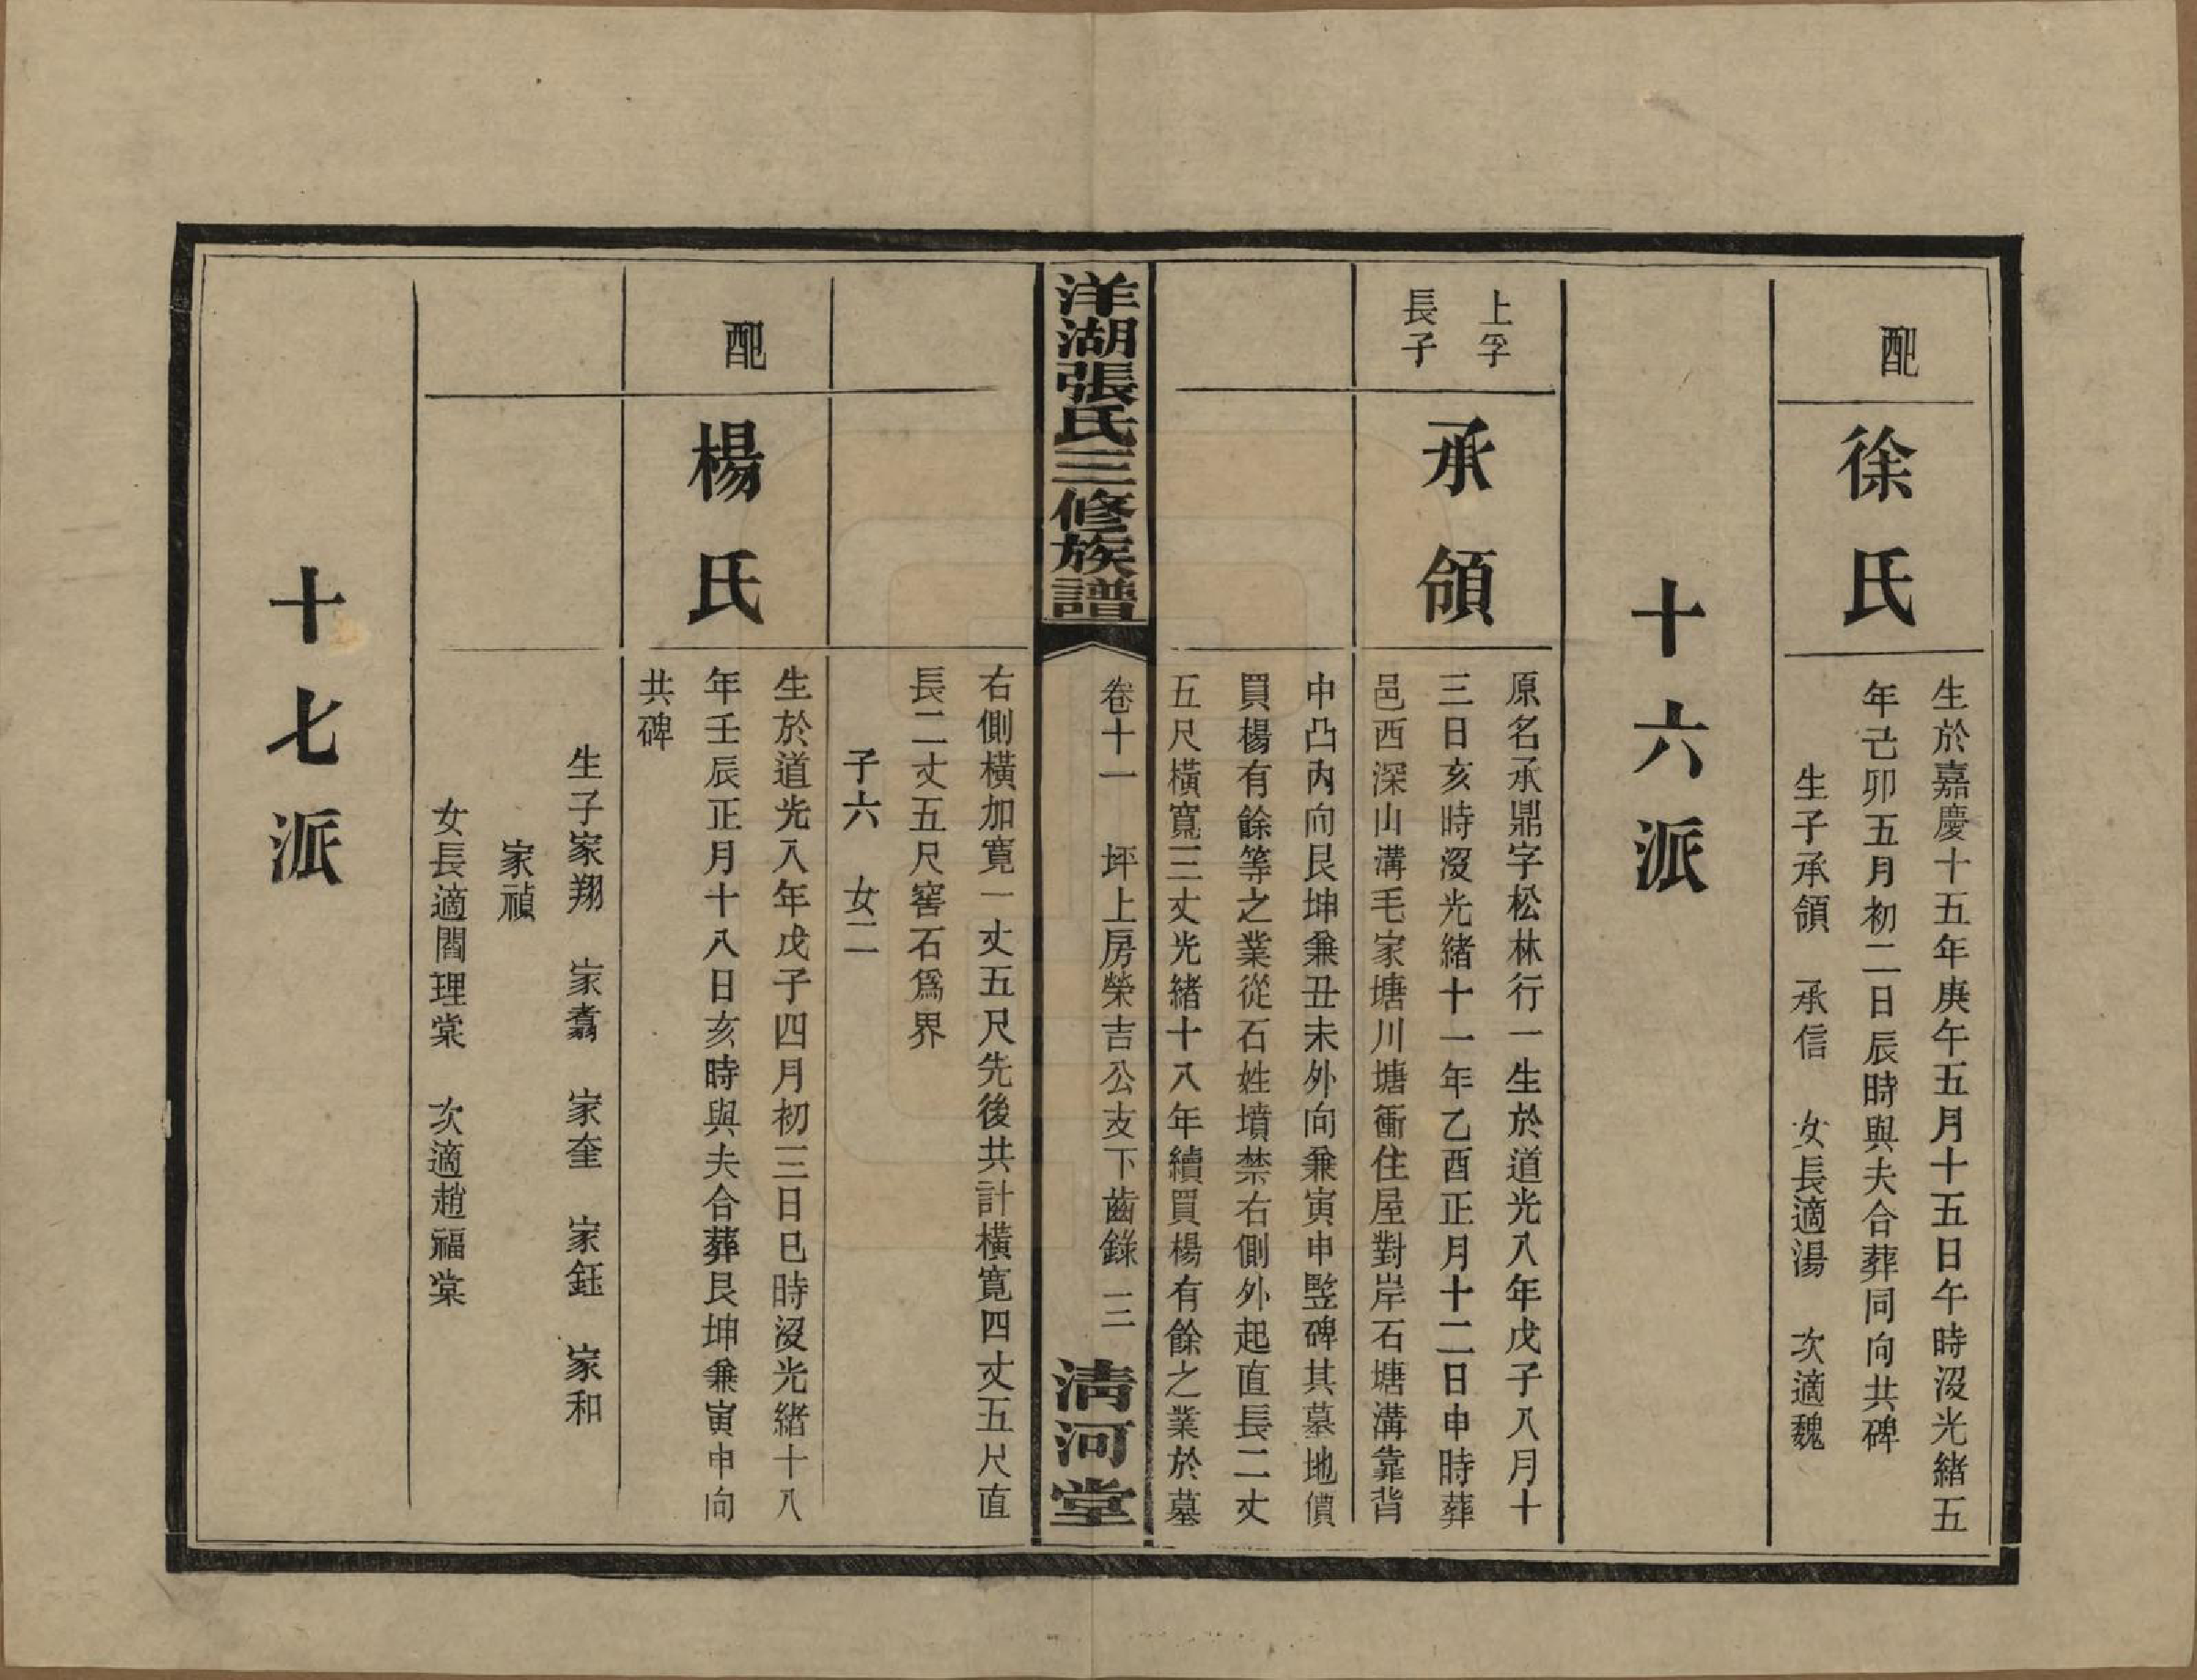 配
徐氏
生於嘉慶十五年庚午五月十五日午時沒光緒五
年己卯五月初二日辰時與夫合葬同向共碑
生子承領　承信　女長適湯　次適魏
十六派
上孚
長子
承領
原名承鼎字松林行一生於道光八年戊子八月十
三日亥時沒光緒十一年乙酉正月十二日申時葬
邑西深山溝毛家塘川塘衝住屋對岸石塘溝靠背
中凸內向艮坤兼丑未外向兼寅申竪碑其墓地價
買楊有餘等之業從石姓墳禁右側外起直長二丈
五尺橫寬三丈光緒十八年續買楊有餘之業於墓
洋湖張氏三修族譜
卷十一　坪上房榮吉公支下齒錄　三
清河堂
右側橫加寬一丈五尺先後共計橫寬四丈五尺直
長二丈五尺窖石爲界
子六　女二
配
楊氏
生於道光八年戊子四月初三日巳時沒光緒十八
年壬辰正月十八日亥時與夫合葬艮坤兼寅申向
共碑
生子家翔　家翥　家奎　家鈺　家和
家禎
女長適閻理棠　次適趙福棠
十七派